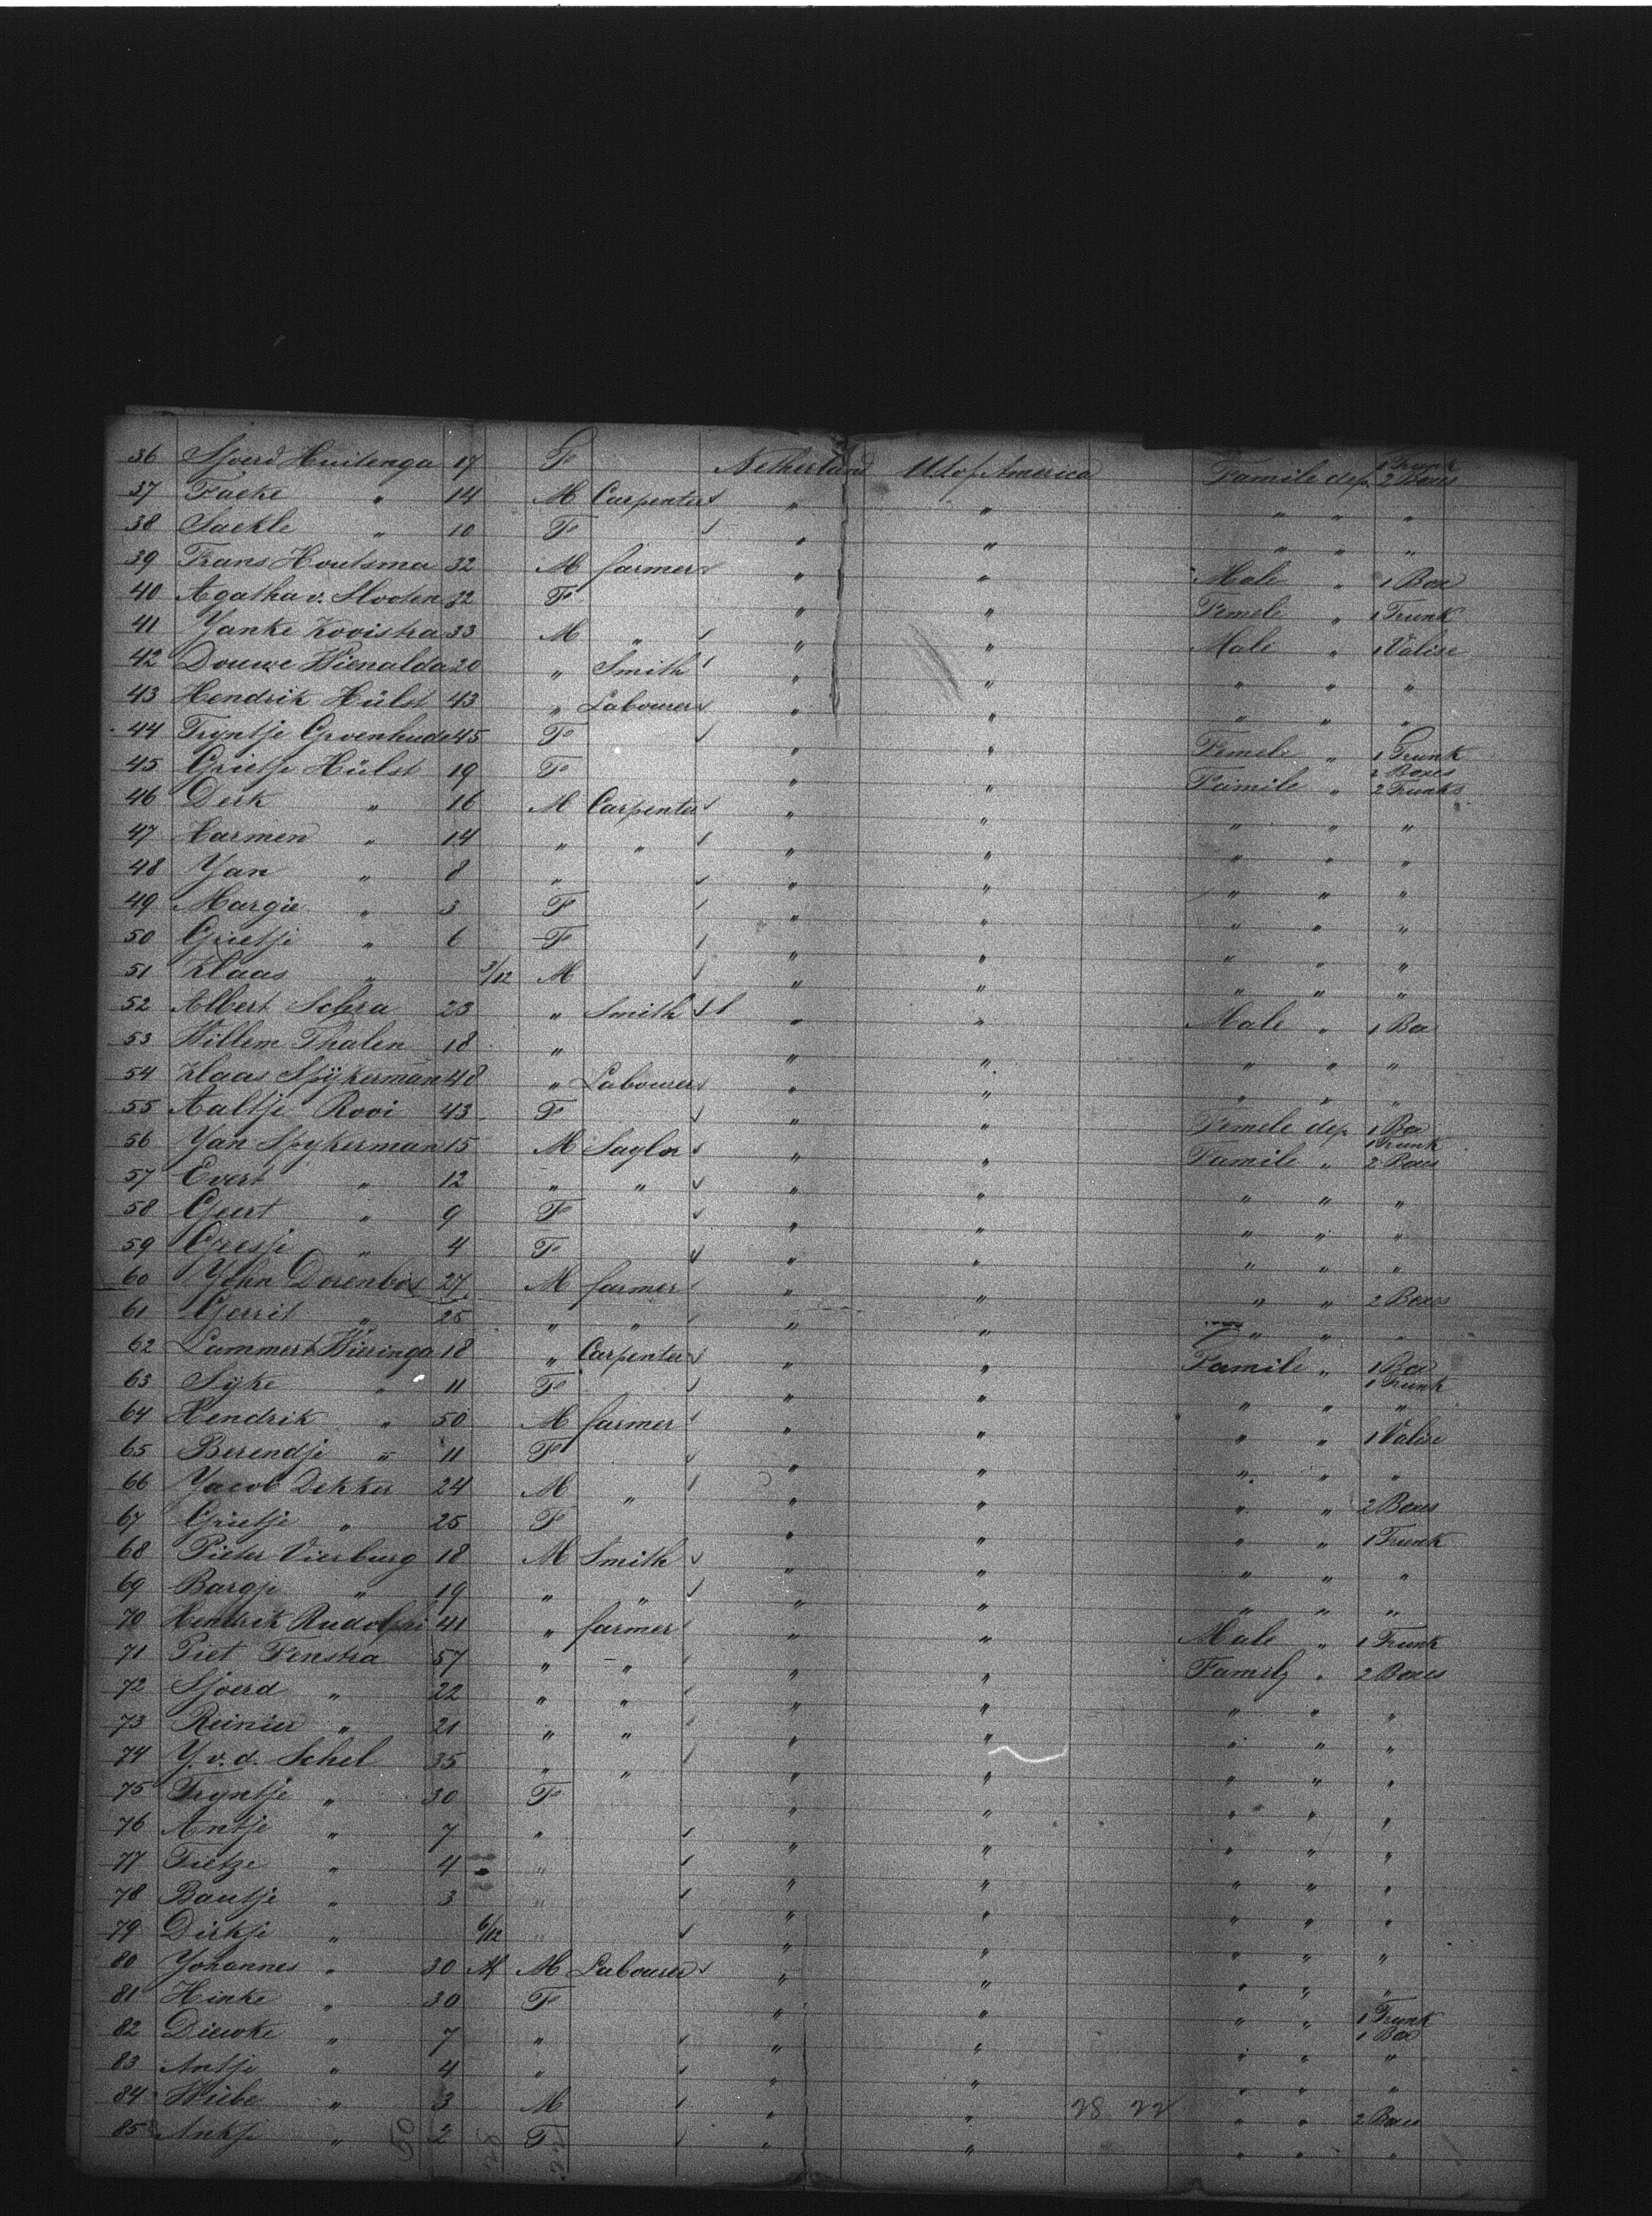 36 Sjoerd Huitenga 17 F Netherland U.S. of America Famile dep. 1 Trunk 2 Boxes
37 Facke " 14 M Carpenter " " " " "
38 Sackle " 10 F " " " " "
39 Frans Houtsma 32 M farmer " " Male " 1 Box
40 Agatha v. Slooten 32 F " " Femele " 1 Trunk
41 Yanke Kooistra 33 M " " " Male " 1 Valise
42 Douwe Wienalda 20 " Smith " " " " "
43 Hendrik Hülst 43 " Labourer " " " " "
44 Tryntje Groenhude 45 F " " Femele " 1 Trunk
45 Grietje Hülst 19 F " " Famile " 2 Boxes 2 Trunks
46 Derk " 16 M Carpenter " " " " "
47 Harmen " 14 " " " " " " "
48 Yan " 8 " " " " " "
49 Margie " 3 F " " " " "
50 Grietje " 6 F " " " " "
51 Klaas " 3/12 M " " " " "
52 Albert 23 " Smith " " Male " 1 Box
53 Willem Thalen 18 " " " " " "
54 Klaas Spÿkerman 48 " Labourer " " " " "
55 Aaltje Rooi 43 F " " Femele dep. 1 Box
56 Yan Spykerman 15 M Saylor " " Famile " 1 Trunk 2 Boxes
57 Evert " 12 " " " " " " "
58 Geert " 9 F " " " " "
59 Gresje " 4 F " " " " "
60 John Dorenbos 27 M farmer " " " " 2 Boxes
61 Gerrit " 25 " " " " " " "
62 Lammert Wieringa 18 " Carpenter " " Famile " 1 Box 1 Trunk
63 Sÿke " 11 F " " " " "
64 Hendrik " 50 M farmer " " " " 1 Valise
65 Berendje " 11 F " " " " "
66 Yacob Dekker 24 M " " " " " 2 Boxes
67 Grietje " 25 F " " " " 1 Trunk
68 Pieter Vierburg 18 M Smith " " " " "
69 Bargje " 19 " " " " " " "
70 Hendrik Rudolphi 41 " farmer " " Male " 1 Trunk
71 Piet Fenstra 57 " " " " Family " 2 Boxes
72 Sjoerd " 22 " " " " " " "
73 Reinier " 21 " " " " " " "
74 Y. v. d. Schel 35 " " " " " " "
75 Tryntje " 30 F " " " " "
76 Antje " 7 " " " " " "
77 Tietze " 4 " " " " " "
78 Bautje " 3 " " " " " "
79 Dirkje " 6/12 " " " " " "
80 Yohannes " 30 M Labourer " " " " "
81 Hinke " 30 F " " " " 1 Trunk 1 Box
82 Diewke " 7 " " " " " "
83 Antje " 4 " " " " " "
84 Wiebe " 3 M " " 28 22 " " 2 Boxes
85 Ankje " 50 2 F " " " " "